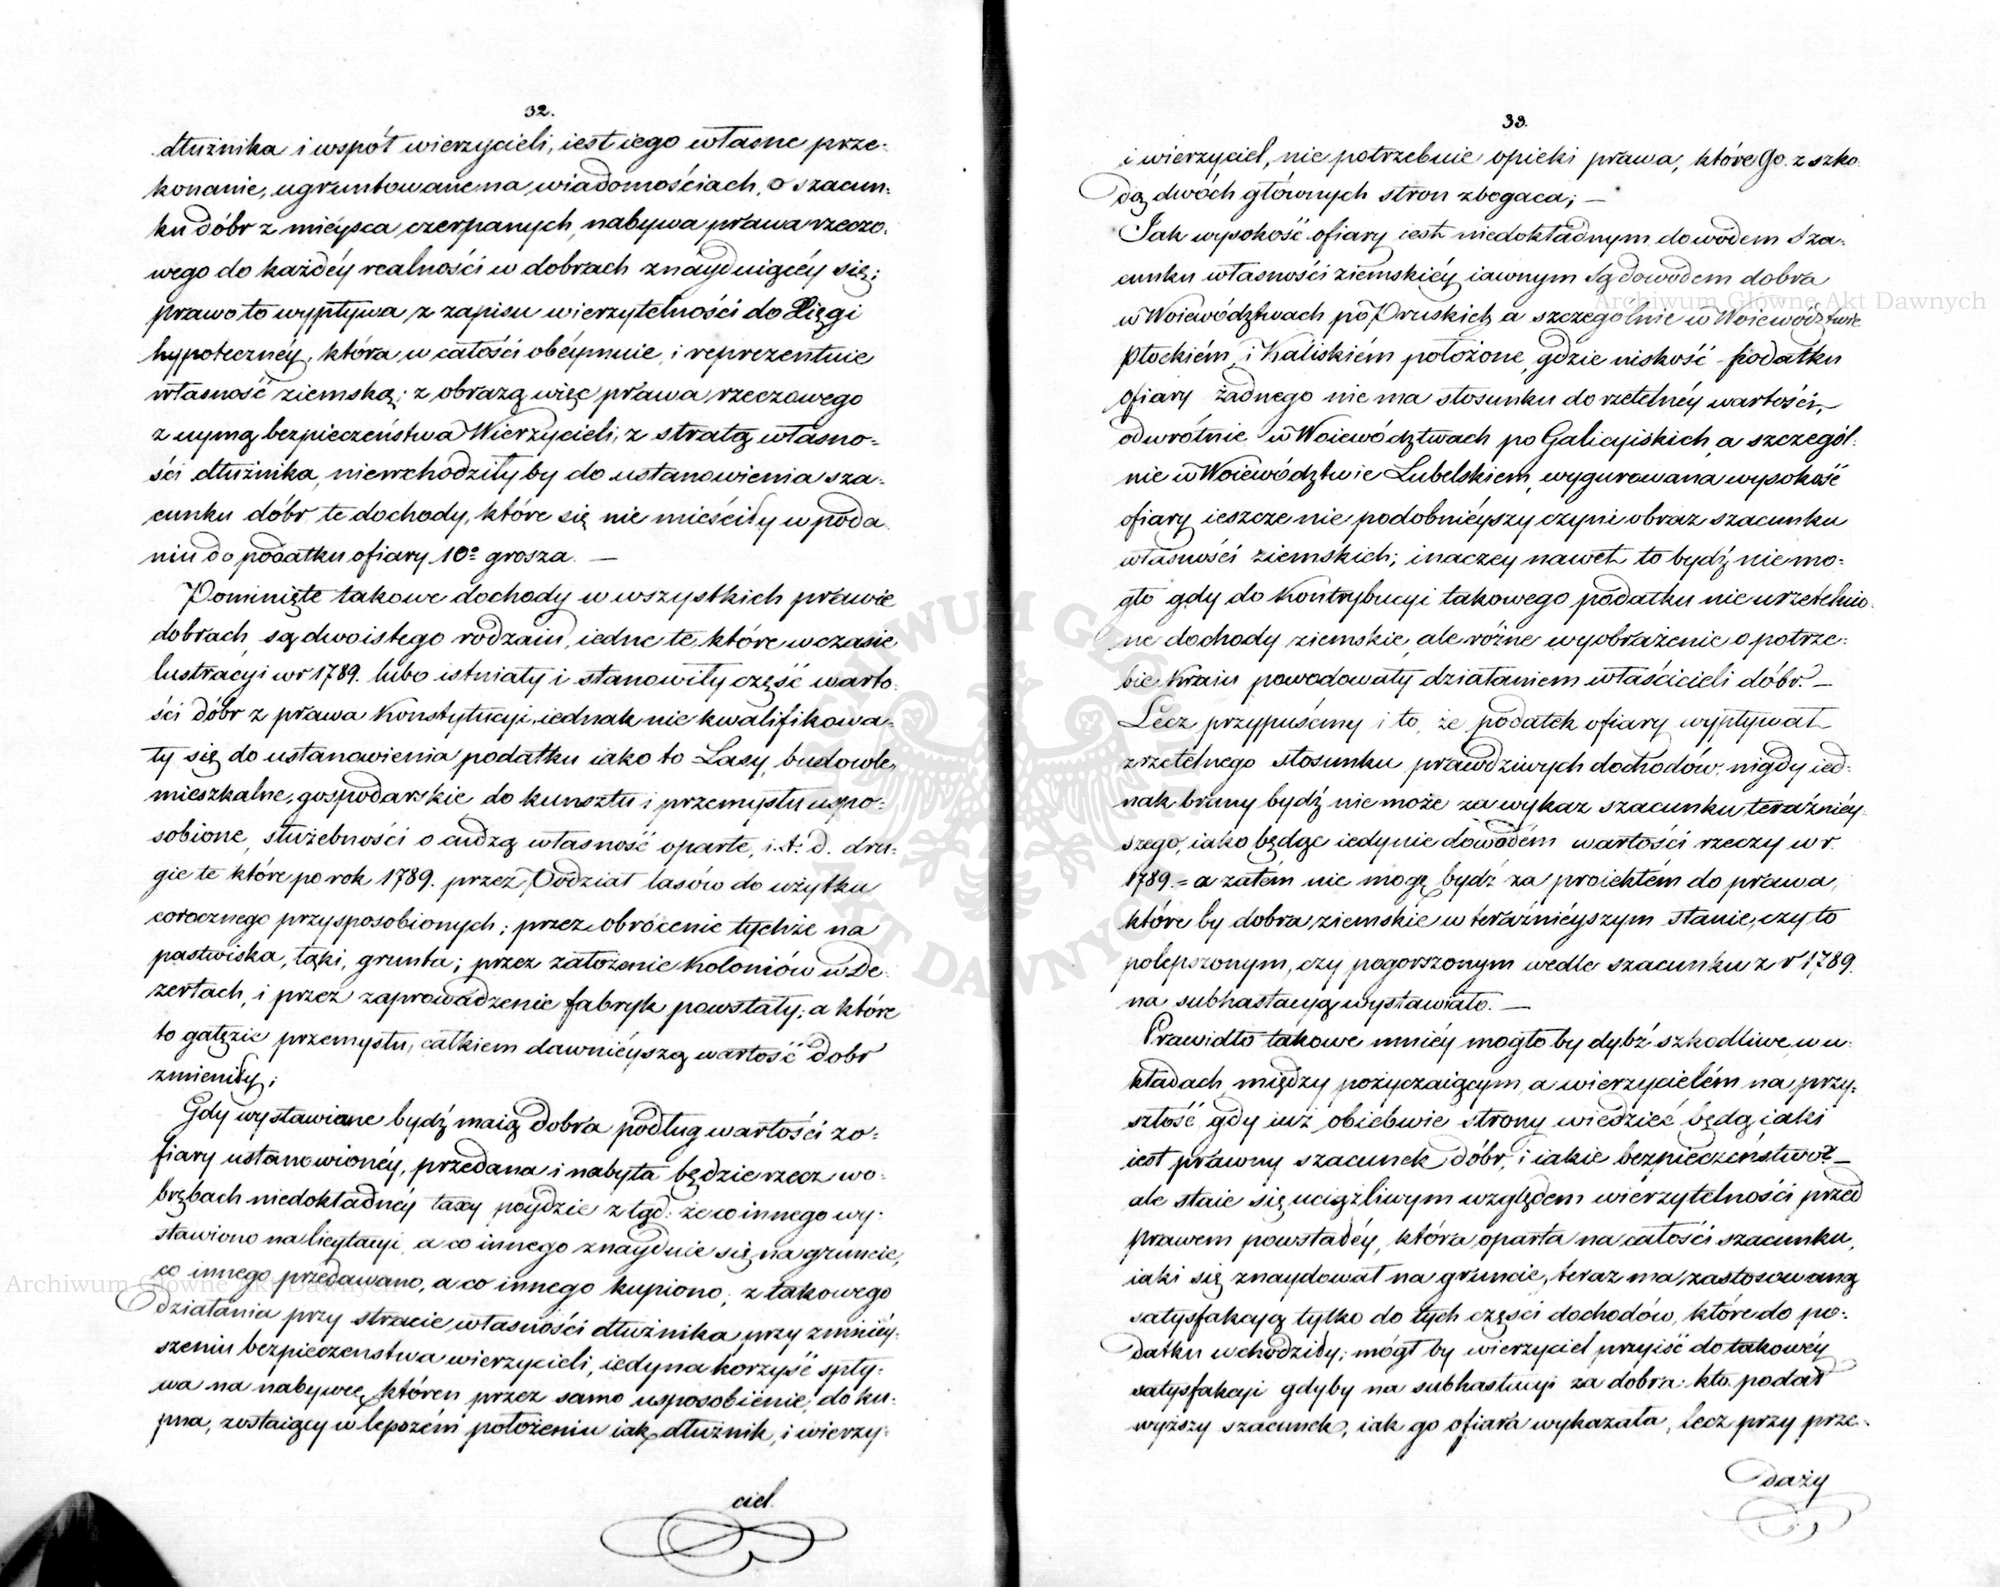 32.
dłużnika i współ wierzycieli, iest iego własne prze-
konanie, ugruntowane na wiadomościach, o szacun-
ku dóbr z mieysca czerpanych, nabywa prawa rzeczo-
wego do każdéy realności w dobrach znayduiącéy się;
prawo to wypływa z zapisu wierzytelności do Xięgi
hypotecznéy, która w całości obéymuie i reprezentuie
własność ziemską; z obrazą więc prawa rzeczowego
z uymą bezpieczeństwa Wierzycieli, z stratą własno-
ści dłużnika, niewchodziły by do ustanowienia sza-
cunku dóbr te dochody, które się nie mieściły w poda-
niu do podatku ofiary 10º grosza. —
Pominięte takowe dochody w wszystkich prawie
dobrach, są dwoistego rodzaiu, iedne te, które w czasie
lustracyi w r 1789. lubo istniały i stanowiły część warto-
ści dóbr z prawa Konstytucyi, iednak nie kwalifikowa-
ły się do ustanowienia podatku iako to Lasy, budowle,
mieszkalne, gospodarskie do kunsztu i przemysłu uspo-
sobione, służebności o cudzą własność oparte, i. t. d. dru-
gie te które po rok 1789. przez Podział lasów do użytku
corocznego przysposobionych; przez obrócenie tychże na
pastwiska, łąki, grunta; przez założenie Koloniów w De-
zertach, i przez zaprowadzenie fabryk powstały; a które
to gałęzie przemysłu, całkiem dawniéyszą wartość dobr
zmieniły;
Gdy wystawiane bydź maią dobra podług wartości z o-
fiary ustanowionéy, przedana i nabyta będzie rzecz w o-
brębach niedokładnéy taxy poydzie ztąd: że co innego wy-
stawiono na licytacyi, a co innego znayduie się na gruncie,
co innego przedawano, a co innego kupiono; z takowego
działania przy stracie własności dłużnika przy zmniéy-
szeniu bezpieczenstwa wierzycieli, iedyna korzyść spły-
wa na nabywcę, któren przez samo usposobienie do ku-
pna, zostaiący w lepszém położeniu iak dłużnik, i wierzy-
ciel.
33.
i wierzyciel, nie potrzebuie opieki prawa, które Go z szko-
dą dwóch głównych stron zbogaca; —
Jak wysokość ofiary iest niedokładnym dowodem sza-
cunku własności ziemskiéy, iawnym są dowodem dobra
w Woiewództwach po Pruskich, a szczególnie w Woiewództwie
Płockiém i Kaliskiém położone, gdzie niskość podatku
ofiary żadnego nie ma stosunku do rzetelnéy wartości, —
odwrótnie w Woiewództwach po Galicyiskich, a szczegól-
nie w Woiewództwie Lubelskiem, wygurowana wysokość
ofiary ieszcze nie podobniéyszy czyni obraz szacunku
własności ziemskich; inaczey nawet to bydź nie mo-
gło gdy do Kontrybucyi takowego podatku nie urzetelnio-
ne dochody ziemskie, ale różne wyobrażenie o potrze-
bie Kraiu powodowały działaniem właścicieli dóbr. —
Lecz przypuśćmy i to, że podatek ofiary wypływał
z rzetelnego stosunku prawdziwych dochodów, nigdy ied-
nak brany bydź nie może za wykaz szacunku teraźniéy-
szego, iako będąc iedynie dowodém wartości rzeczy w r.
1789. = a zatém nie mogę bydź za proiektém do prawa,
które by dobra ziemskie w teraźniéyszym stanie, czy to
polepszonym, czy pogorszonym wedle szacunku z r 1789.
na subhastacyą wystawiało. —
Prawidło takowe mniéy mogło by dydź szkodliwe, w u-
kładach między pożyczaiącym, a wierzycielém na przy-
szłość, gdy iuż obiebwie strony wiedzieć będą iaki
iest prawny szacunek dóbr, i iakie bezpieczeństwo? —
ale staie się uciążliwym względem wierzytelności przed
prawem powstałéy, która oparta na całości szacunku,
iaki się znaydował na gruncie, teraz ma zastosowaną
satysfakcyą tylko do tych części dochodów, które do po-
datku wchodziły; mógł by wierzyciel przyiść do takowéy
satysfakcyi gdyby na subhastacyi za dobra kto podał
wyższy szacunek, iak go ofiara wykazała, lecz przy prze-
daży
Archiwum Główne Akt Dawnych
Archiwum Główne Akt Dawnych
ARCHIWUM GŁÓWNE AKT DAWNYCH